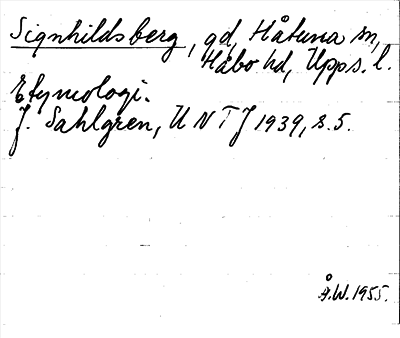 Signhildsberg, gd, Håtuna sn,
Håbo hd, Upps. l.
Etymologi.
J. Sahlgren, UNTJ 1939, s. 5.
Å.W. 1955.